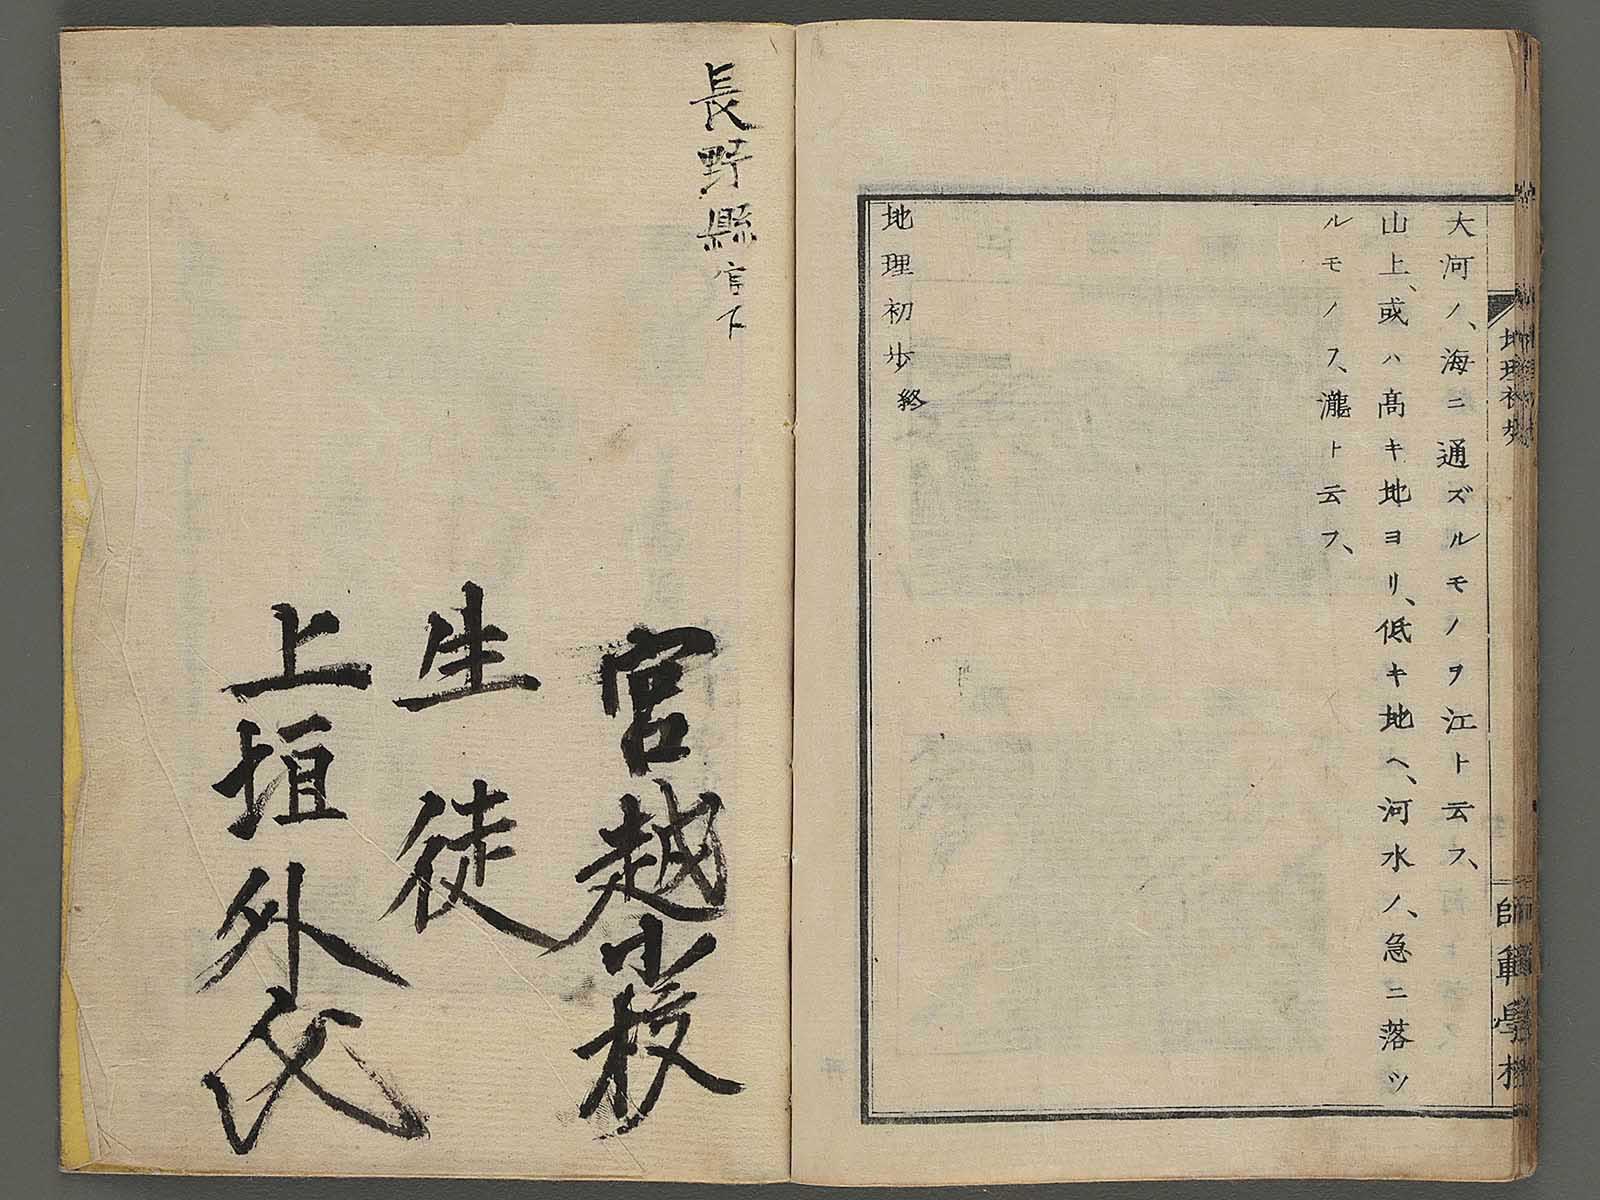 大河ノ、海ニ通ズルモノヲ江ト云フ、
山上、或ハ髙キ地ヨリ、低キ地ヘ、河水ノ、急ニ落ツ
ルモノヲ、瀧ト云フ、
地理初歩終
地理初歩
師範學校
長野縣官下
宮越小校
生徒
上垣外